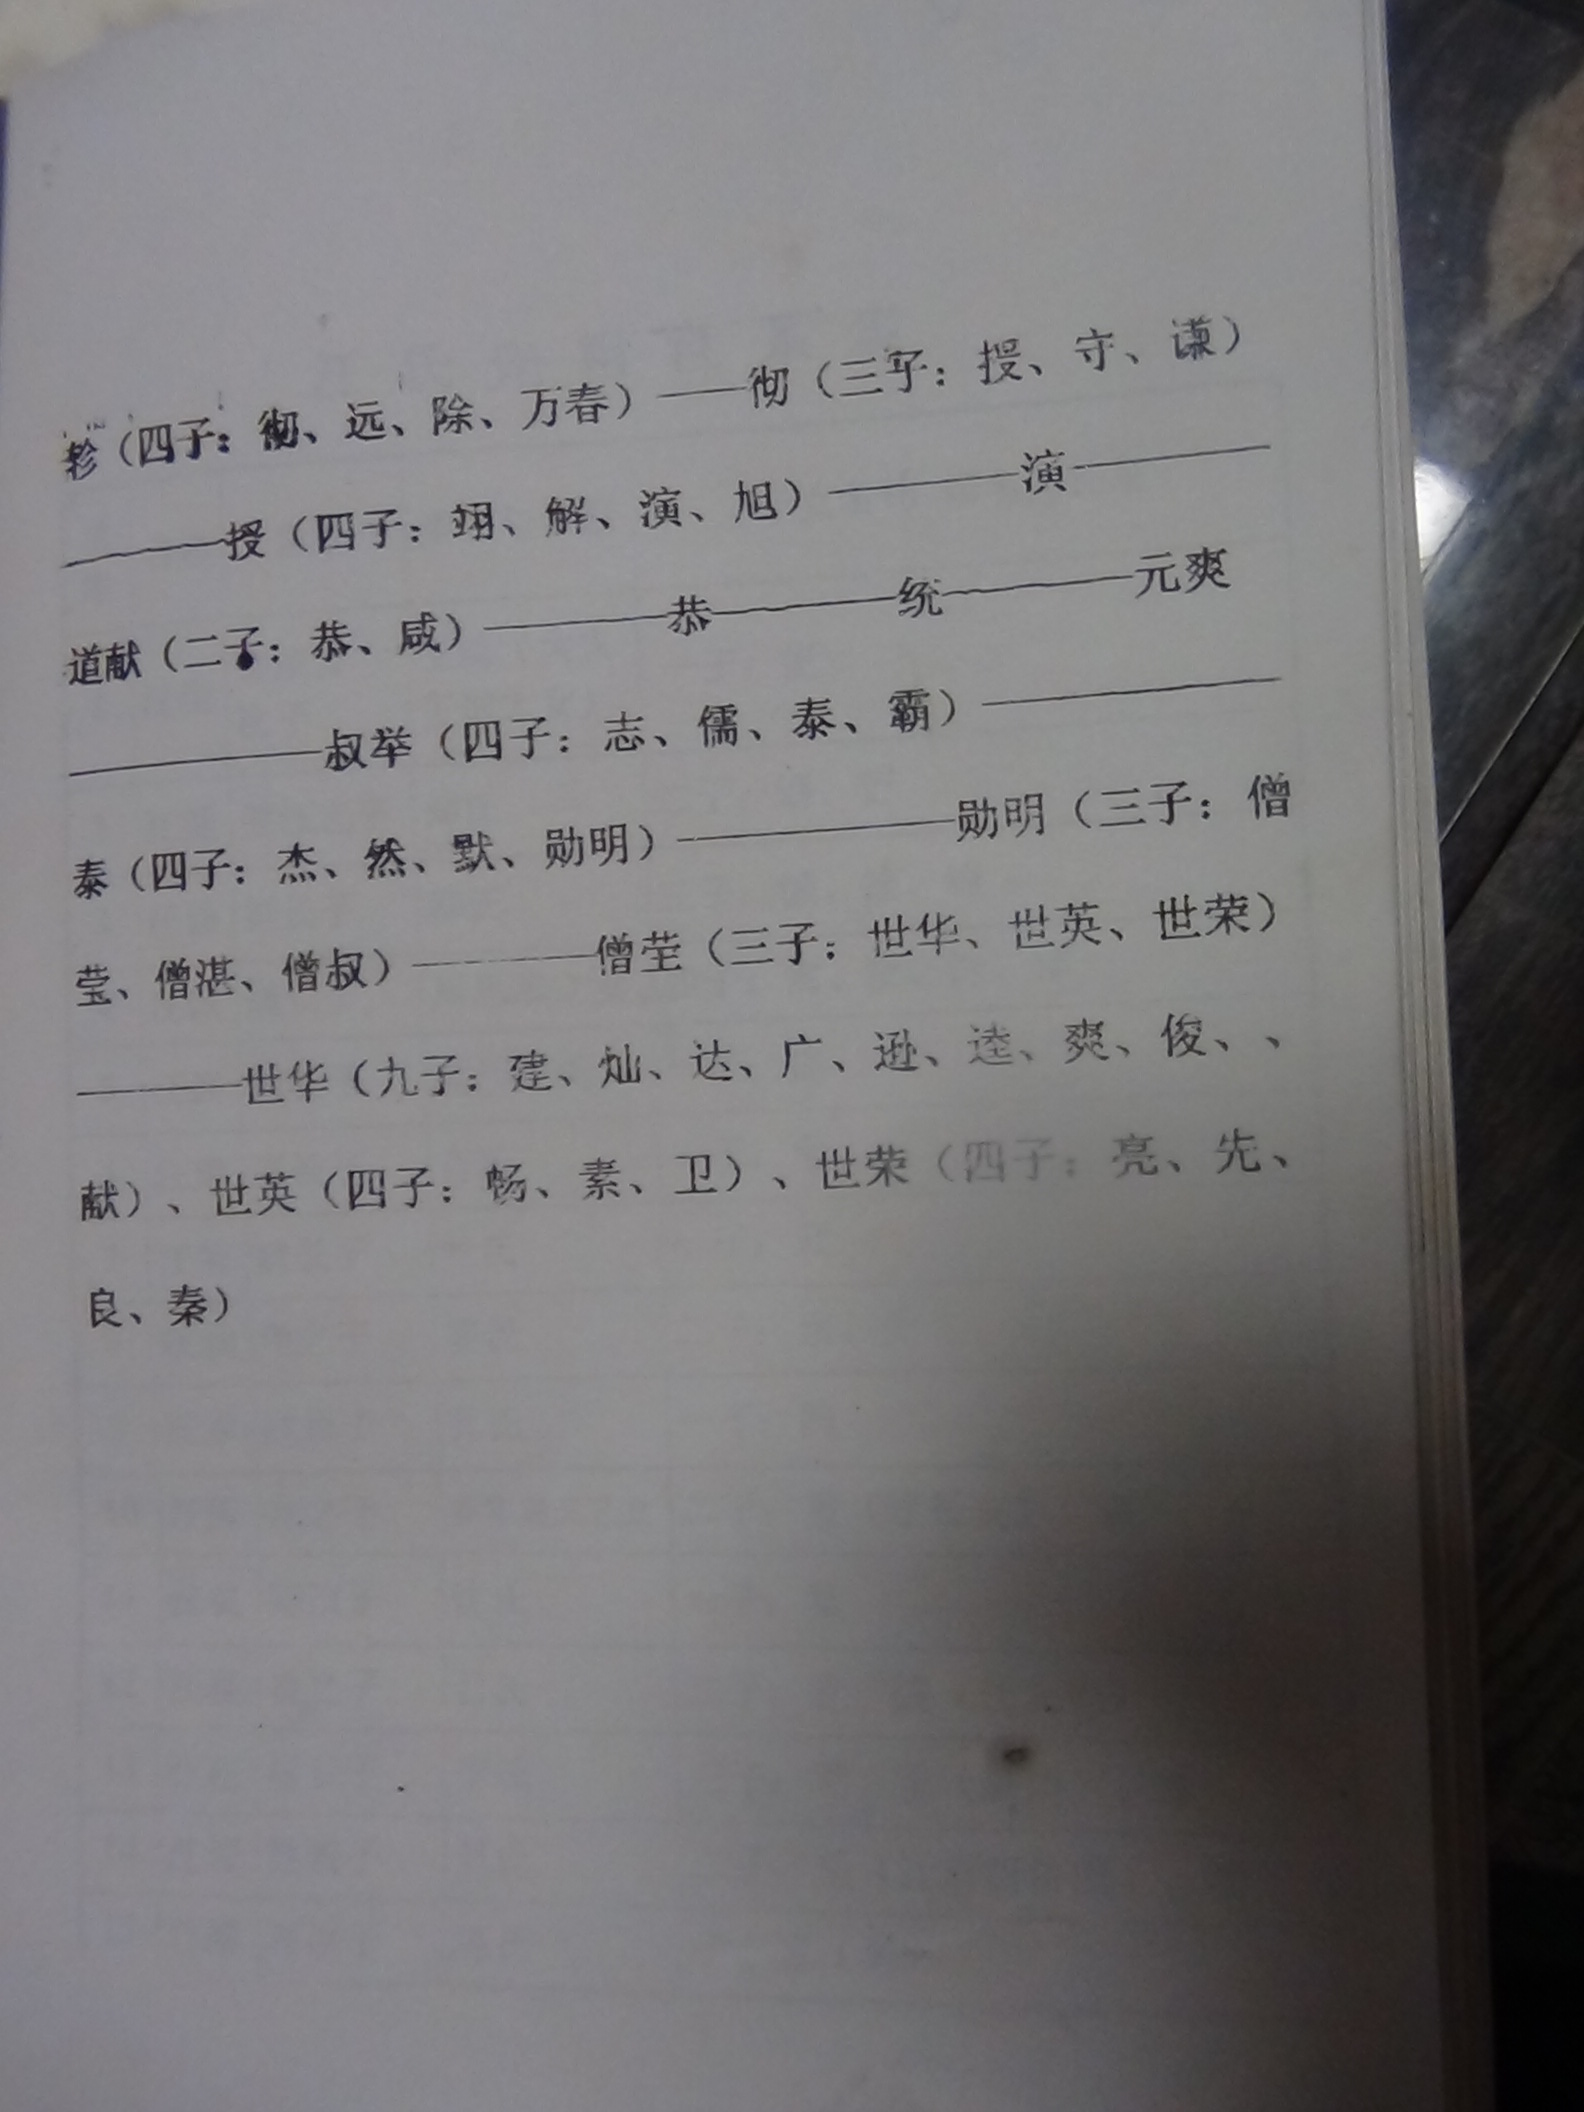 轸（四子：彻、远、除、万春）——彻（三子：授、守、谦）
————授（四子：翊、解、演、旭）————演————
道献（二子：恭、咸）————恭————统————元爽
—————叔举（四子：志、儒、泰、霸）——————
泰（四子：杰、然、默、勋明）—————勋明（三子：僧
莹、僧湛、僧叔）————僧莹（三子：世华、世英、世荣）
———世华（九子：建、灿、达、广、逊、逵、爽、俊、、
献）、世英（四子：畅、素、卫）、世荣（四子：亮、先、
良、秦）